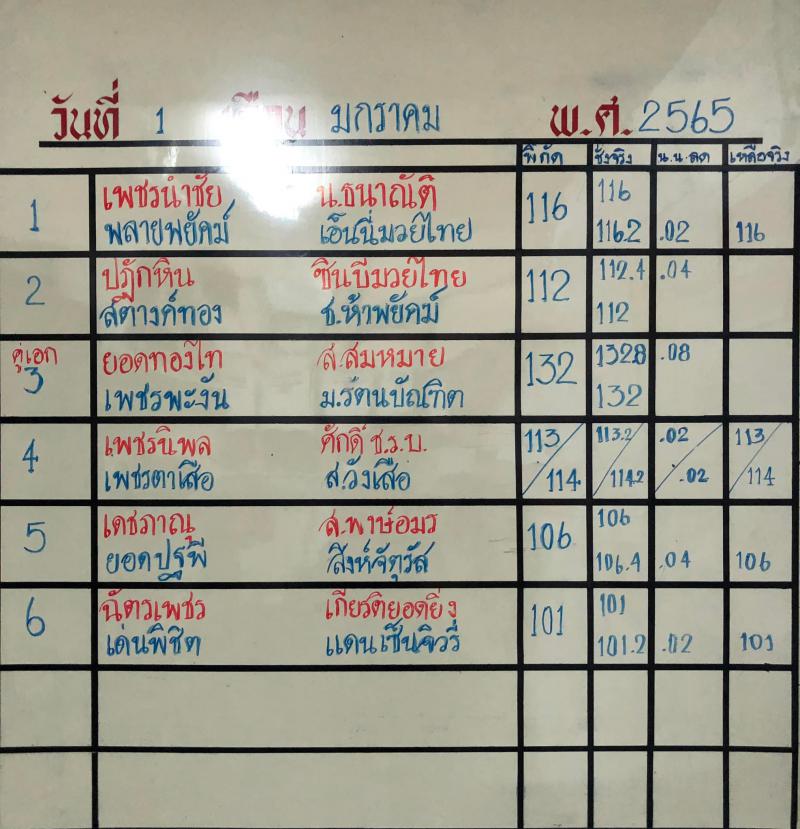 วันที่ 1 เดือน มกราคม พ.ศ. 2565
พิกัด ชั่งจริง น.น.ลด เหลือจริง
1 เพชรนำชัย น.ธนาณัติ 116 116
พลายพยัคฆ์ เอ็นนี่มวยไทย 116.2 .02 116
2 ปฏักหิน ซินบีมวยไทย 112 112.4 .04
สตางค์ทอง ช.ห้าพยัคฆ์ 112
คู่เอก 3 ยอดทองไท ส.สมหมาย 132 132.8 .08
เพชรพะงัน ม.รัตนบัณฑิต 132
4 เพชรนิพล ศักดิ์ ช.ร.บ. 113 113.2 .02 113
เพชรตาเสือ ส.วังเสือ 114 114.2 .02 114
5 เดชภาณุ ส.พาษ์อมร 106 106
ยอดปฐพี สิงห์จัตุรัส 106.4 .04 106
6 ฉัตรเพชร เกียรติยอดยิ่ง 101 101
เด่นพิชิต แดนเซ็นจิวรี่ 101.2 .02 101